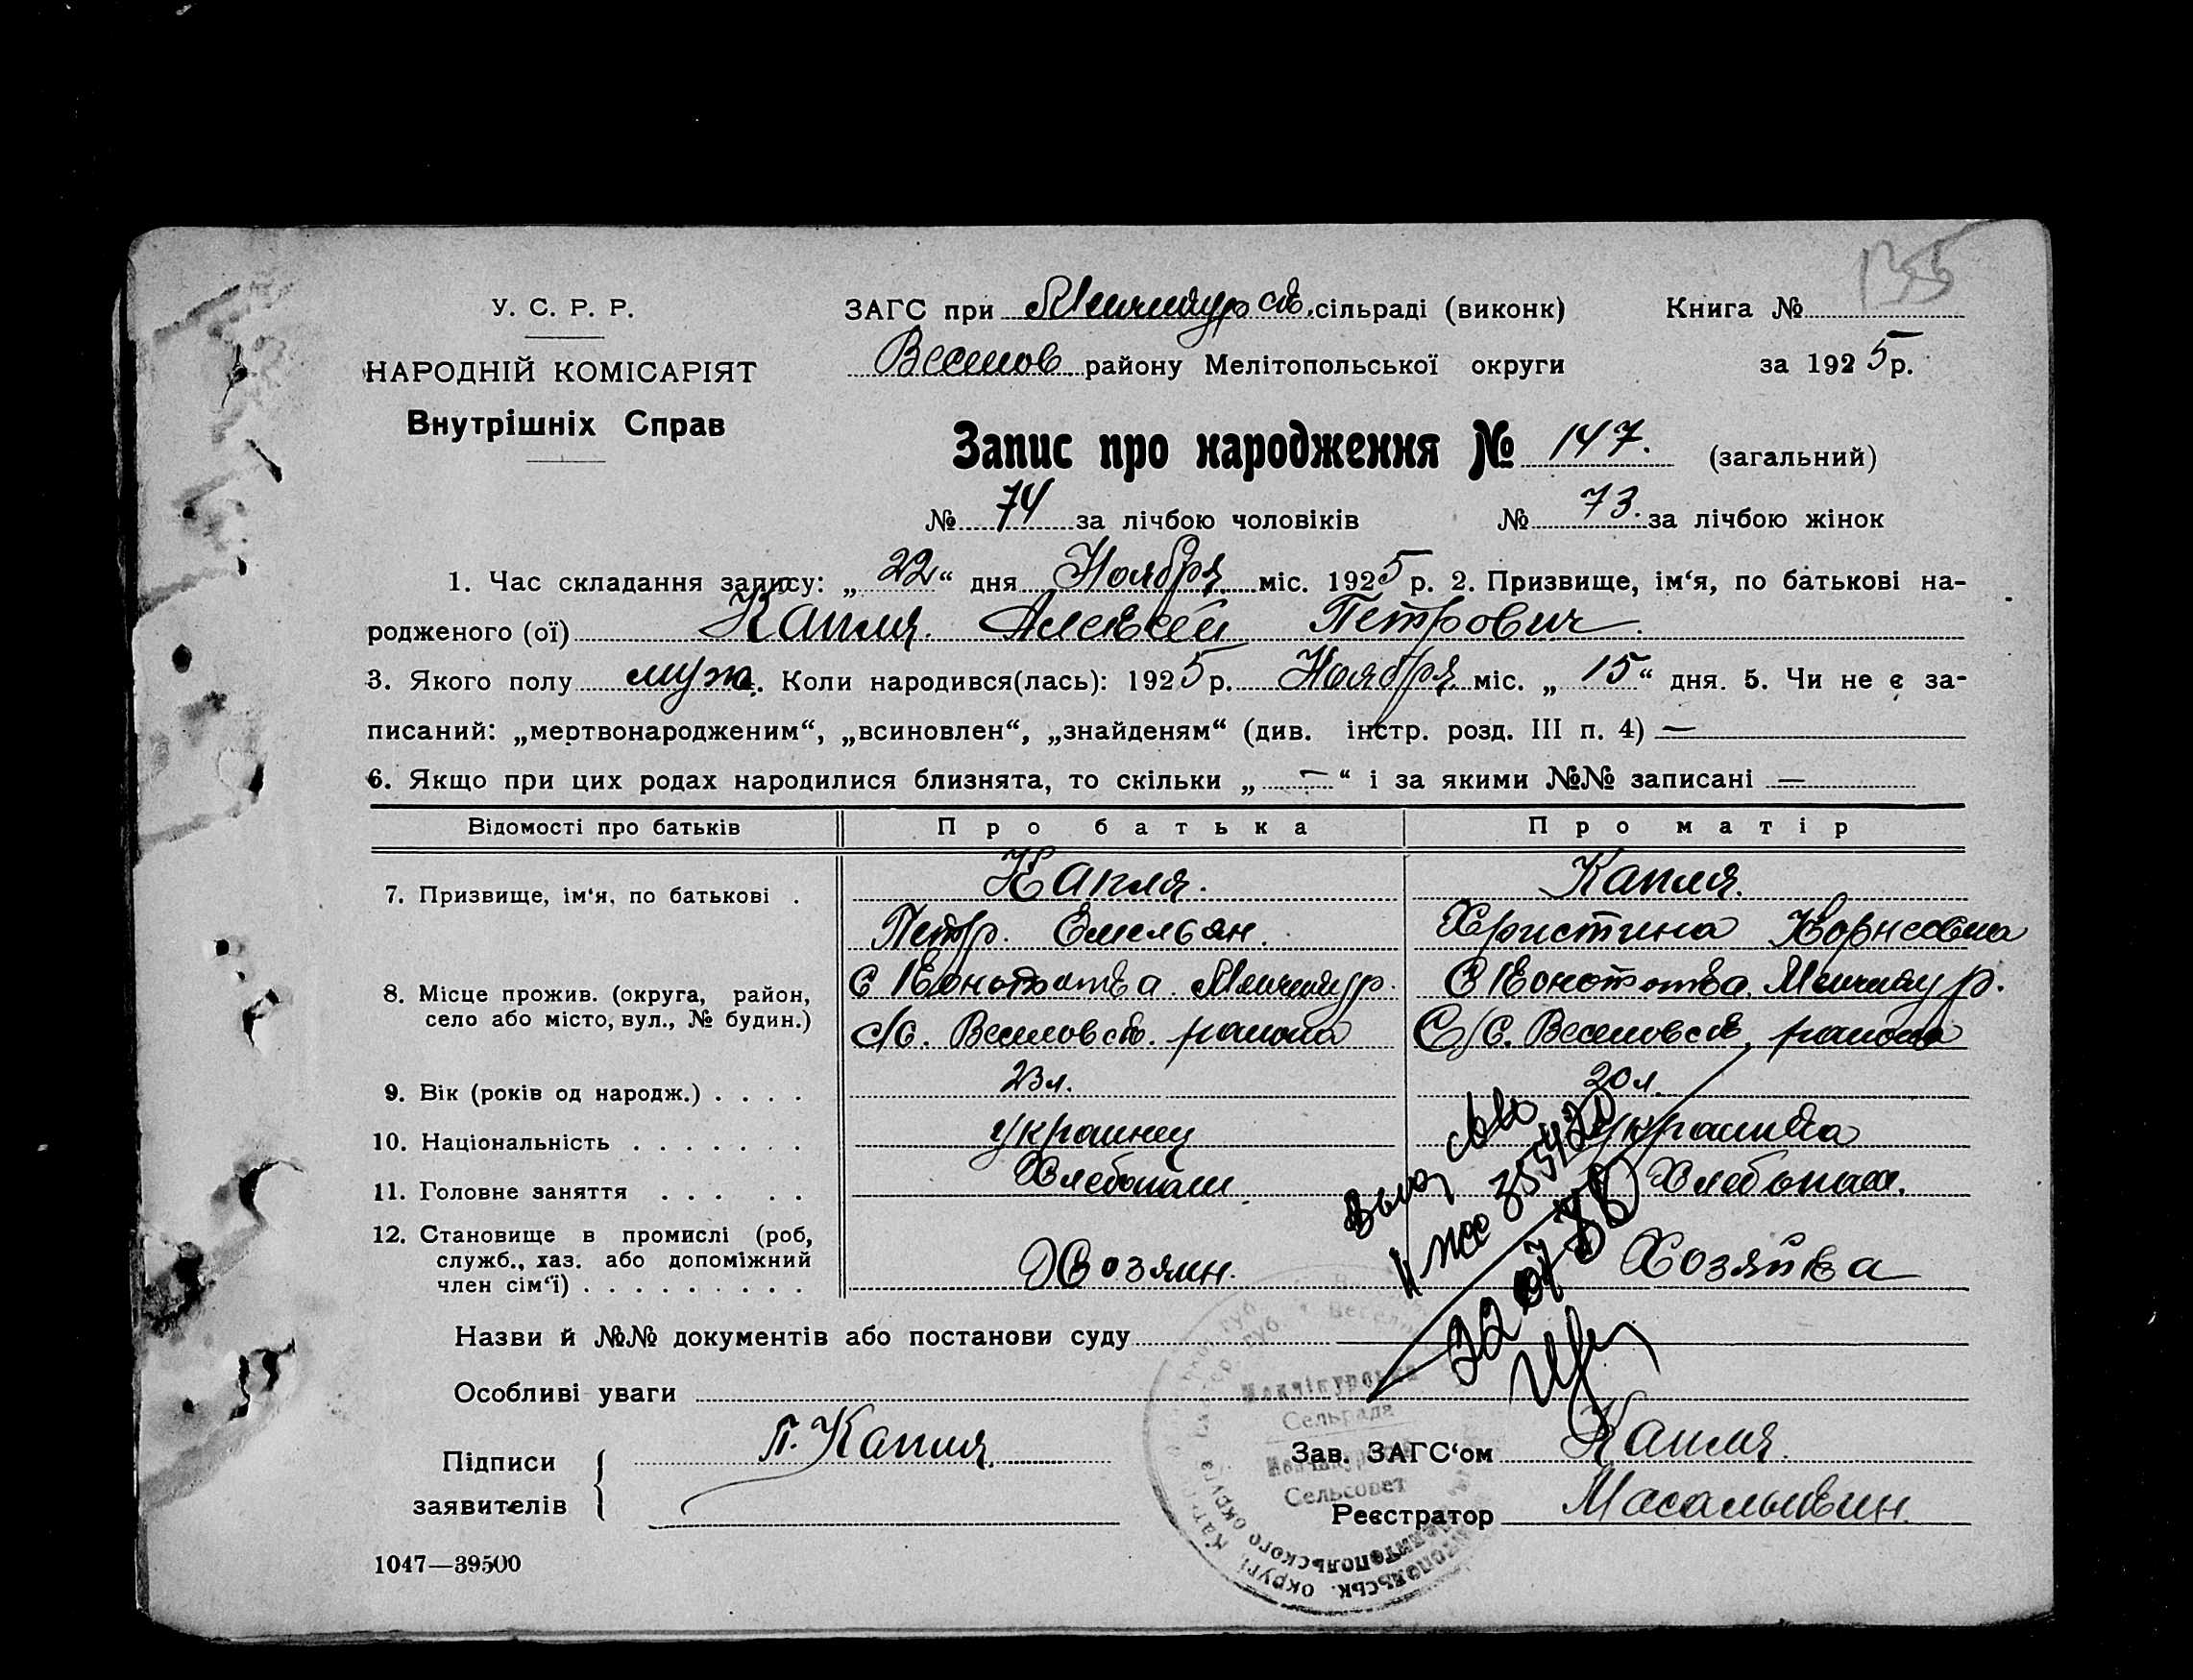 155
У. С. Р. Р.
ЗАГС при Менчикур св. сільраді (виконк)
Книга №
НАРОДНІЙ КОМІСАРІЯТ
Веселов району Мелітопольської округи
за 1925 р.
Внутрішніх Справ
Запис про народження № 147. (загальний)
№ 74 за лічбою чоловіків № 73. за лічбою жінок
1. Час складання запису: „22“ дня Ноября міс. 1925 р. 2. Призвище, ім‘я, по батькові на-
родженого (ої) Капля Алексей Петрович.
3. Якого полу муж. Коли народився(лась): 1925 р. Ноября міс. „15“ дня. 5. Чи не є за-
писаний: „мертвонародженим“, „всиновлен“, „знайденям“ (див. інстр. розд. III п. 4) —
6. Якщо при цих родах народилися близнята, то скільки „—“ і за якими №№ записані —
Відомості про батьків Про батька Про матір
7. Призвище, ім‘я, по батькові .
Капля. Капля.
Петр. Емельян. Христина Корнеевна
8. Місце прожив. (округа, район,
село або місто, вул., № будин.)
Менчикур. Менчикур.
с/с. Веселовск. района С/С. Веселовск. района
9. Вік (років од народж.) . . . . 23 л. 20 л.
10. Національність . . . . . . . украинец украинка
11. Головне заняття . . . . . Хлебопаш. Хлебопаш.
12. Становище в промислі (роб,
служб., хаз. або допоміжний
член сім‘ї) . . . . . . . . . Хозяин. Хозяйка
22 07
Назви й №№ документів або постанови суду
Особливі уваги
Підписи
заявителів
П. Капля.
Зав. ЗАГС‘ом Капля.
Реєстратор Масалыкин.
Сельрада
Сельсовет
Мелитопольского округа
1047—39500